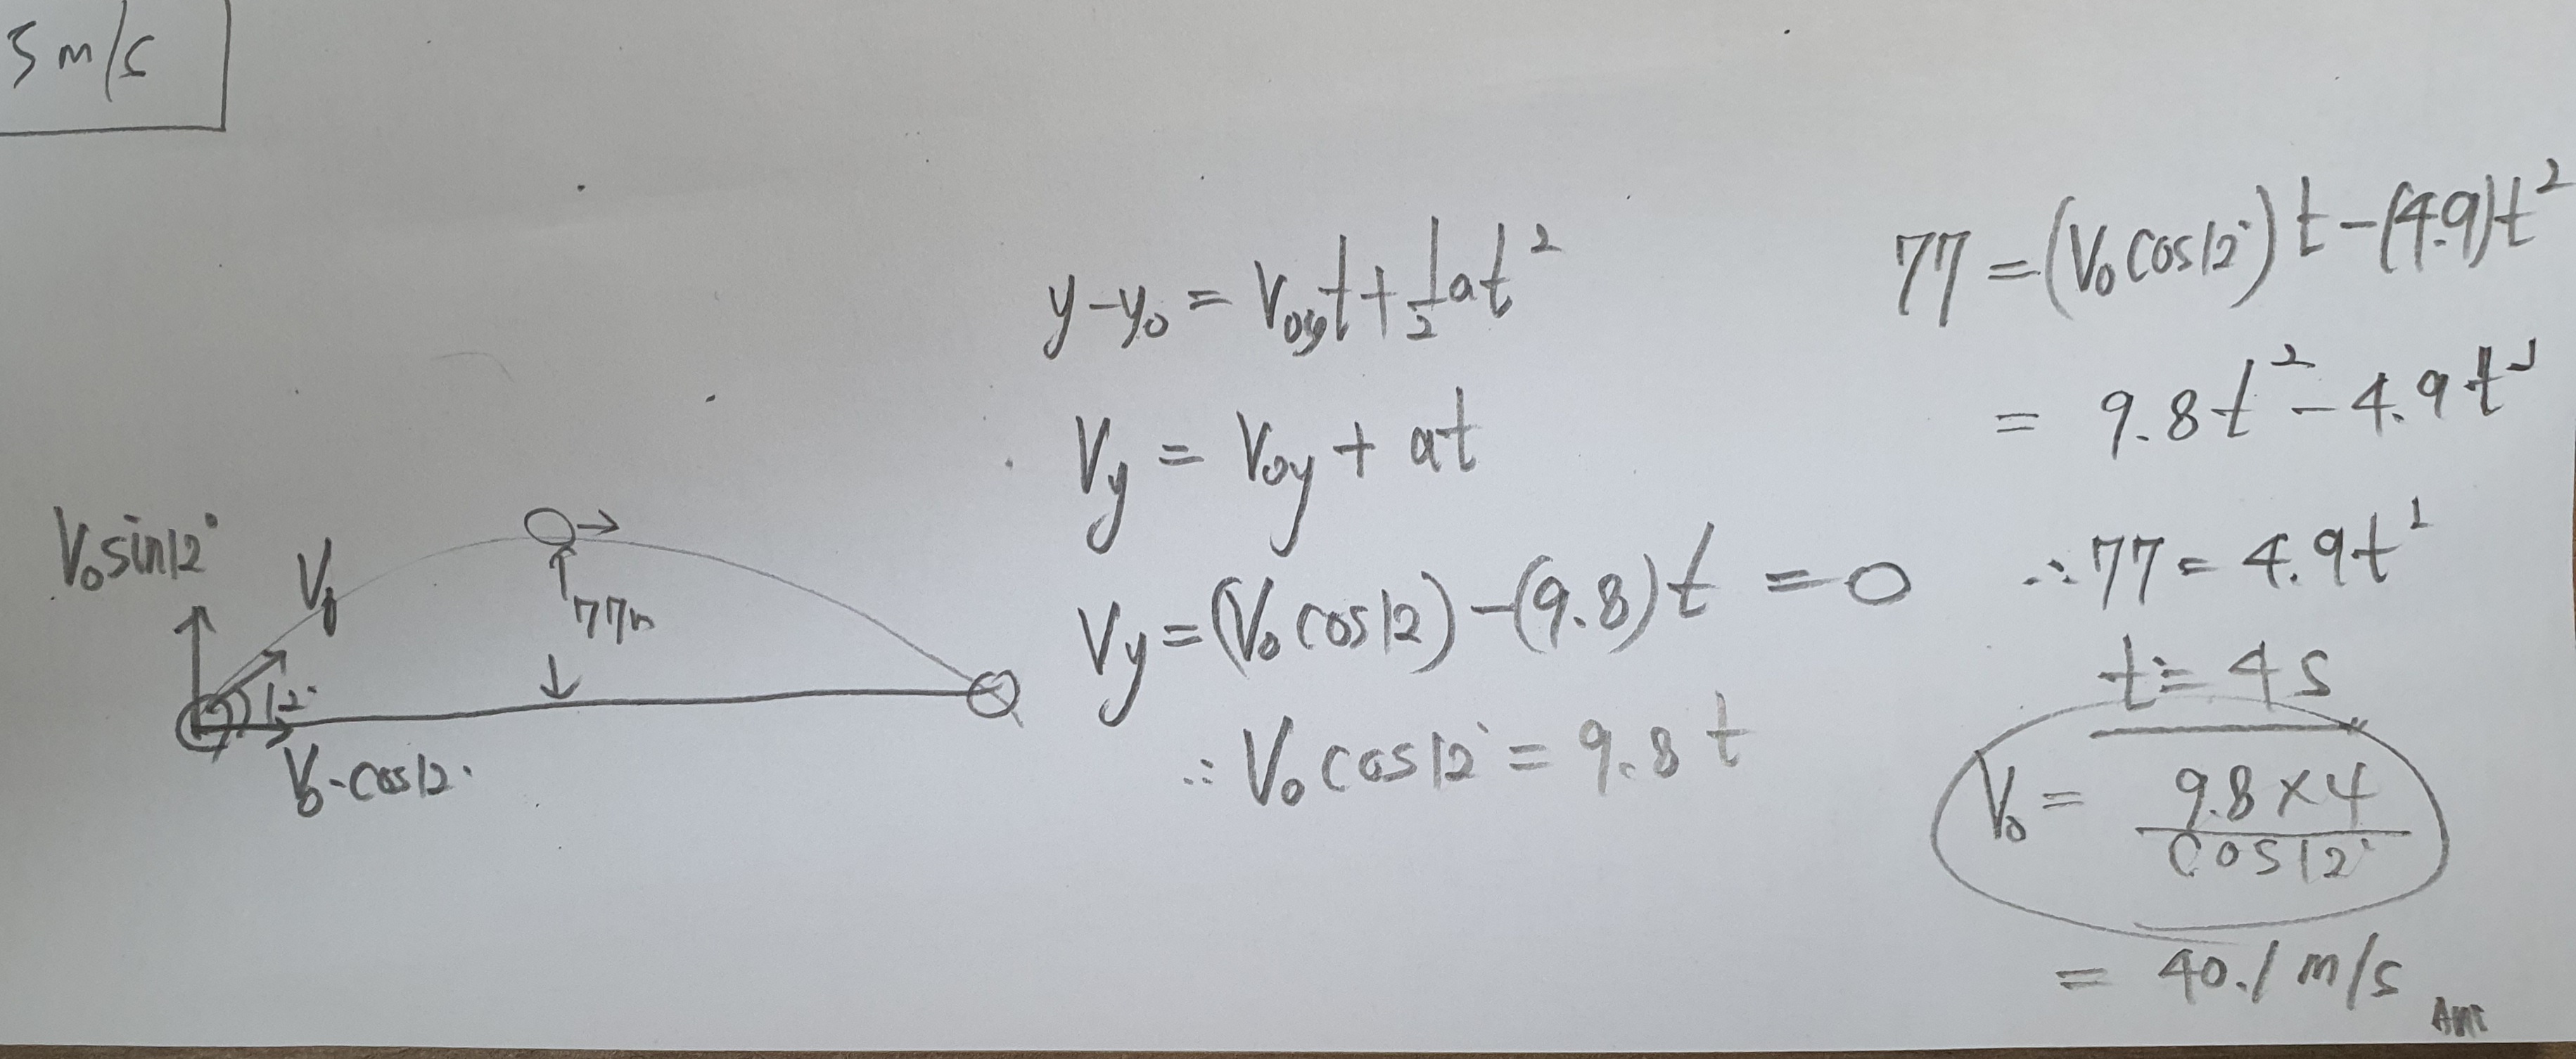 5 m/s
V₀sin12°
V₀
77m
12°
V₀·cos12°
y-y₀ = V₀yt + ½at²
Vy = V₀y + at
Vy = (V₀cos12) - (9.8)t = 0
∴ V₀cos12° = 9.8t
77 = (V₀cos12°)t - (4.9)t²
= 9.8t² - 4.9t²
∴ 77 = 4.9t²
t = 4s
V₀ = 9.8×4 / cos12°
= 40.1 m/s
Ans